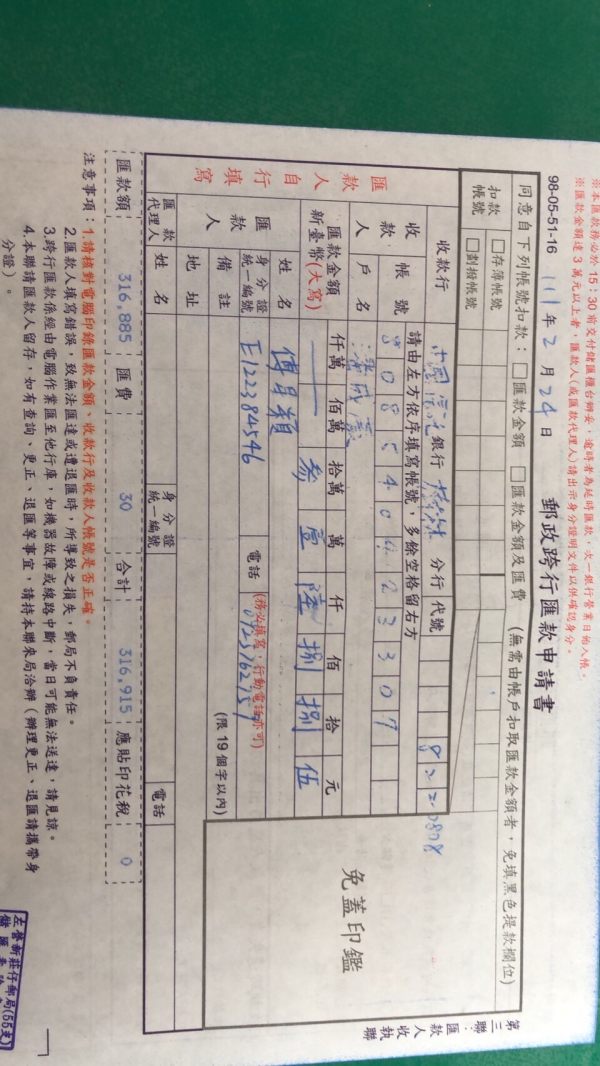 ※本匯款務必於15:30前交付儲匯櫃台辦妥,逾時者為延時匯款,次一銀行營業日始入帳。
※匯款金額達3萬元以上者,匯款人(或匯款代理人)請出示身分證明文件以供確認身分。
98-05-51-16 111年2月24日 郵政跨行匯款申請書
同意自下列帳號扣款:□匯款金額 □匯款金額及匯費 (無需由帳戶扣取匯款金額者,免填黑色提款欄位)
扣款帳號 □存簿帳號
□劃撥帳號
匯款人自行填寫
收款行 中國信託銀行 分行 代號 822-0808
收款人 帳號 請由左方依序填寫帳號,多餘空格留右方
戶名
匯款金額 新臺幣(大寫) 仟萬 佰萬 拾萬 萬 仟 佰 拾 元
參 壹 陸 捌 捌 伍
匯款人 姓名
身分證統一編號 E122384546 電話 (務必填寫,行動電話亦可)
備註 (限19個字以內)
地址
匯款代理人 姓名 身分證統一編號 電話
免蓋印鑑
第三聯:匯款人收執聯
匯款額 316,885 匯費 30 合計 316,915 應貼印花稅 0
注意事項:1.請核對電腦印錄匯款金額、收款行及收款人帳號是否正確。
2.匯款人填寫錯誤,致無法匯達或遭退匯時,所導致之損失,郵局不負責任。
3.跨行匯款係經由電腦作業匯至他行庫,如機器故障或線路中斷,當日可能無法送達,請見諒。
4.本聯請匯款人留存,如有查詢、更正、退匯等事宜,請持本聯來局洽辦(辦理更正、退匯請攜帶身
分證)。
左營新莊仔郵局(55支)